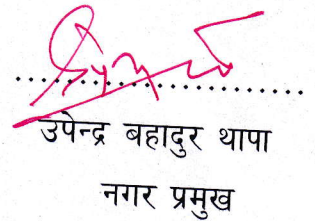 उपेन्द्र बहादुर थापा
नगर प्रमुख